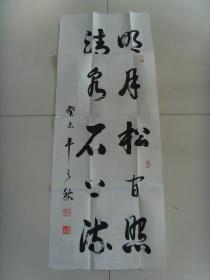 明月松间照
清泉石上流
癸未年之秋